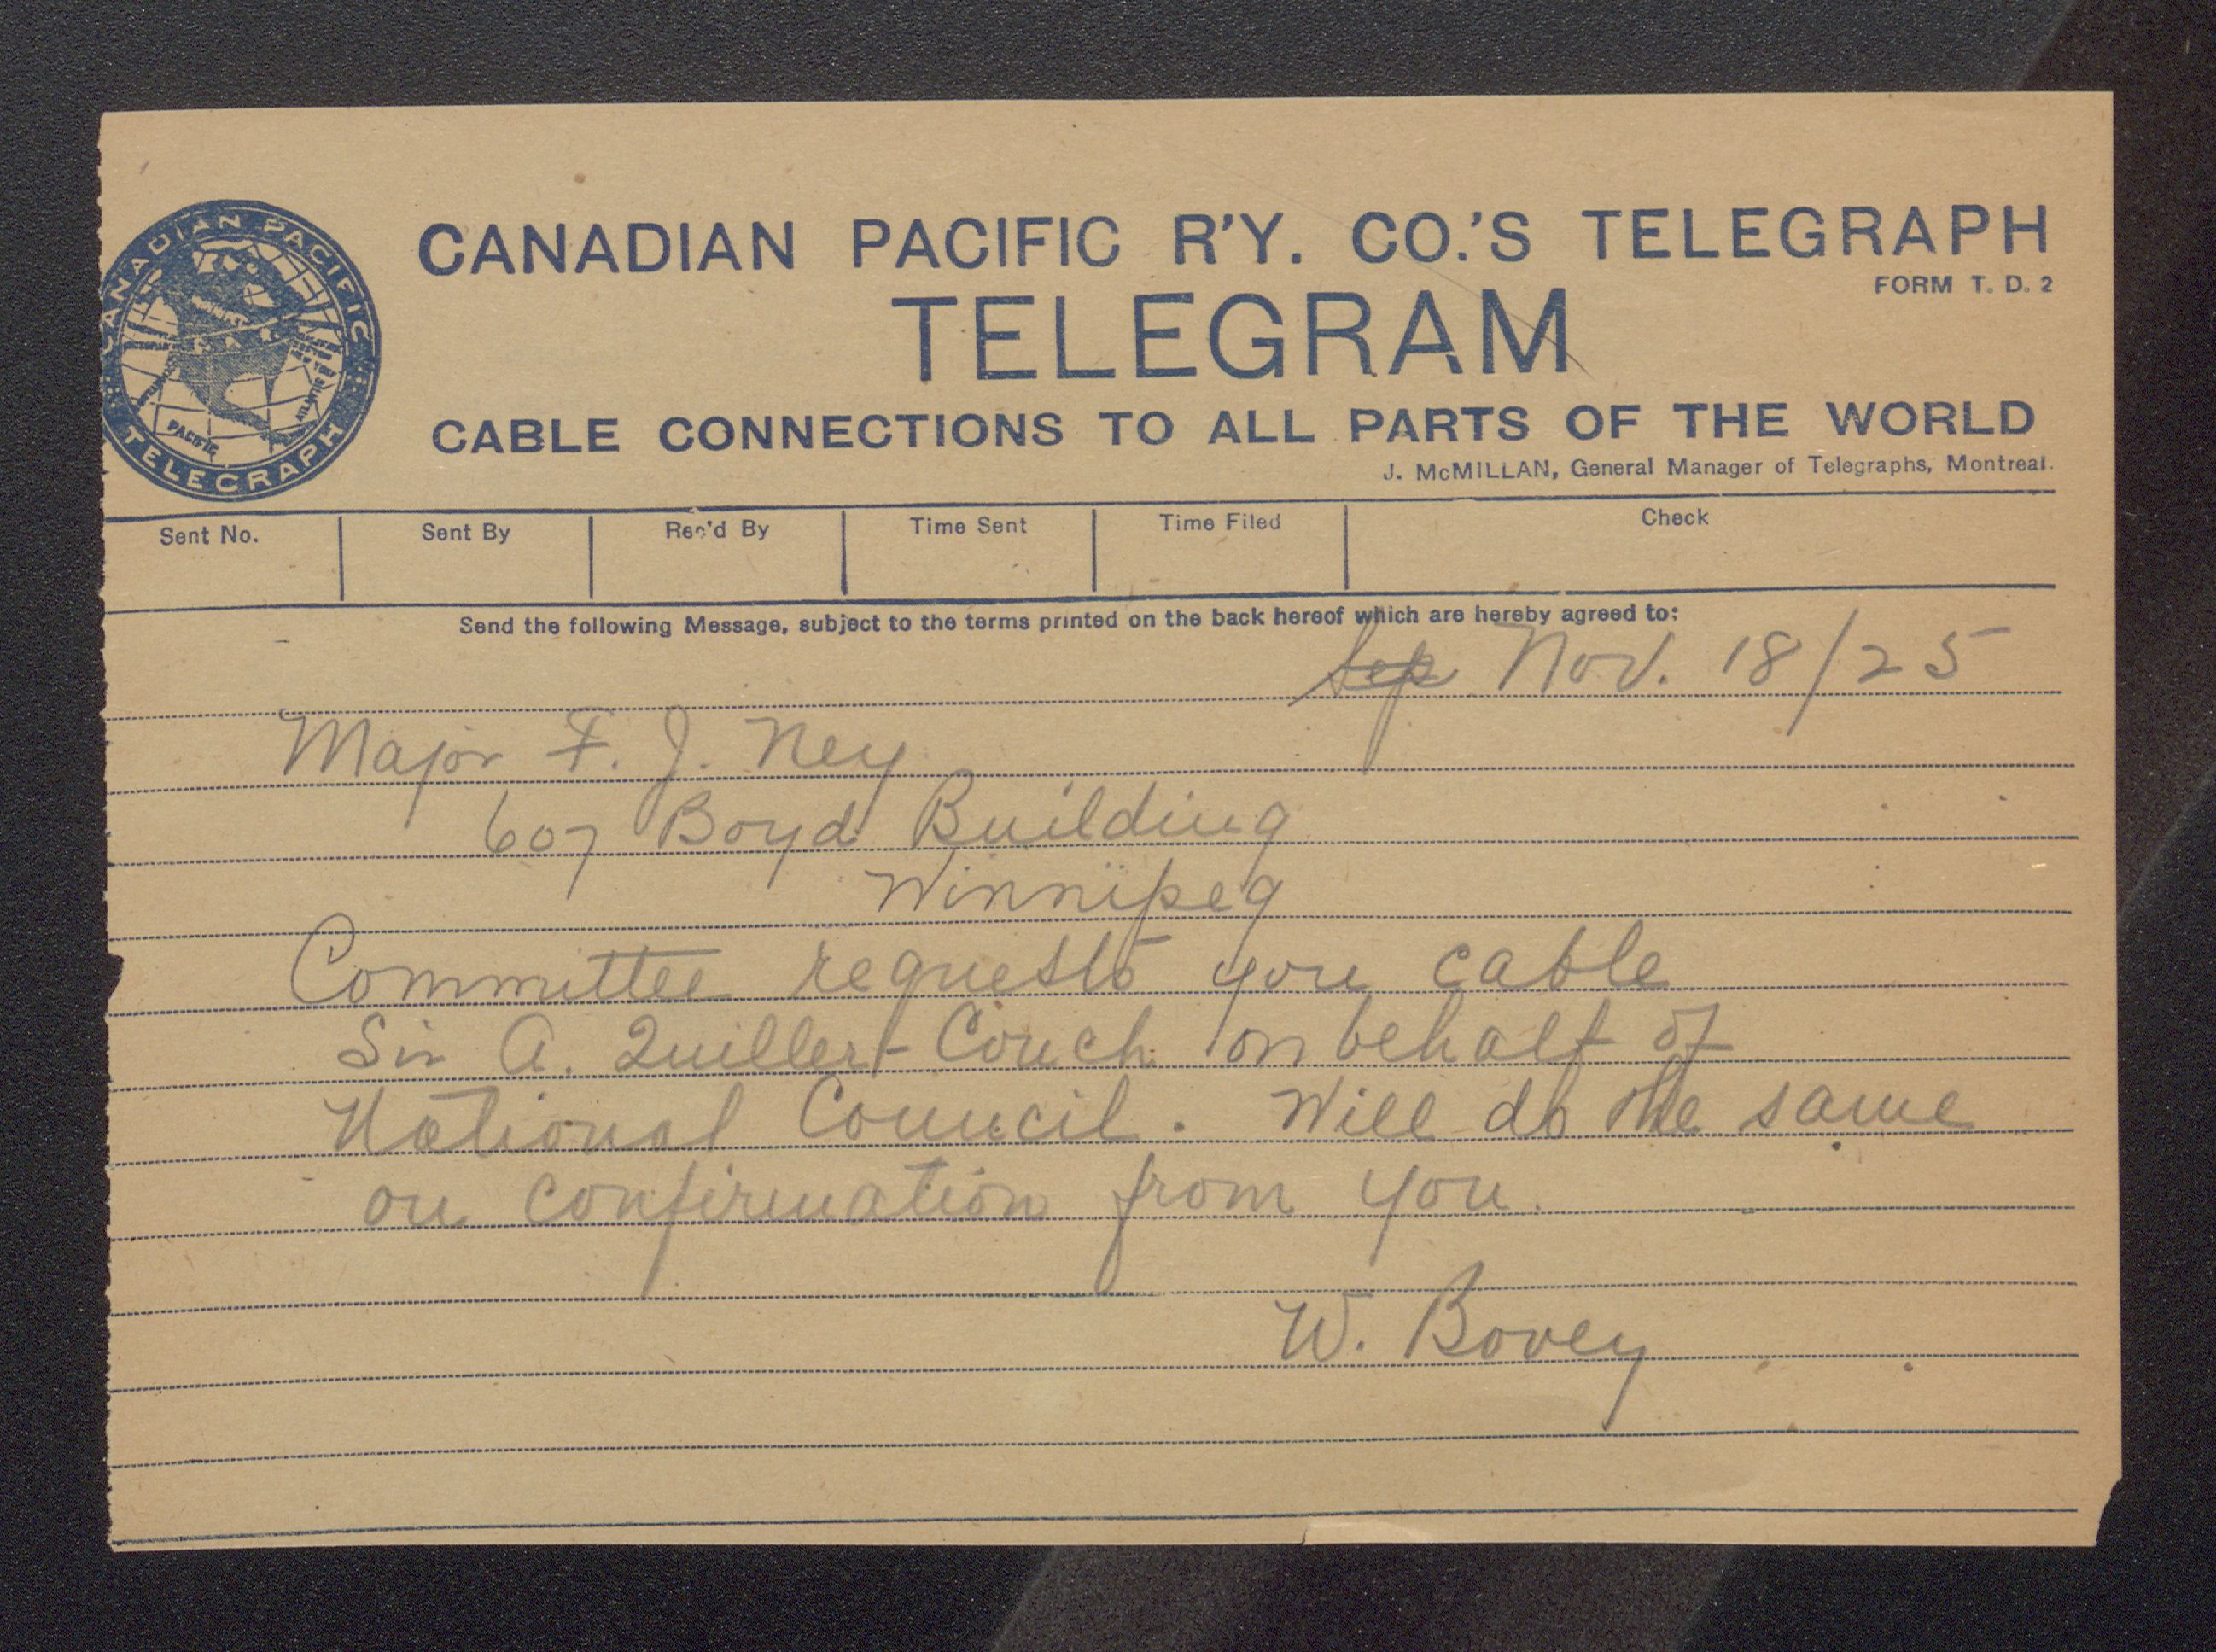 CANADIAN PACIFIC
TELEGRAPH
PACIFIC
CANADIAN PACIFIC R'Y. CO.'S TELEGRAPH
FORM T. D. 2
TELEGRAM
CABLE CONNECTIONS TO ALL PARTS OF THE WORLD
J. McMILLAN, General Manager of Telegraphs, Montreal.
Sent No. Sent By Rec'd By Time Sent Time Filed Check
Send the following Message, subject to the terms printed on the back hereof which are hereby agreed to:
Sep Nov. 18/25
Major F. J. Ney
607 Boyd Building
Winnipeg
Committee requests you cable
Sir A. Quiller-Couch on behalf of
National Council. Will do the same
on confirmation from you.
W. Bovey